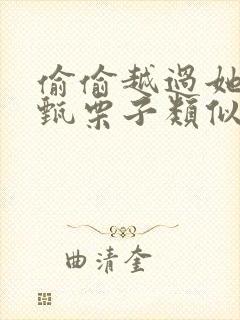 偷偷越過她
甄栗子類似
曲清奎